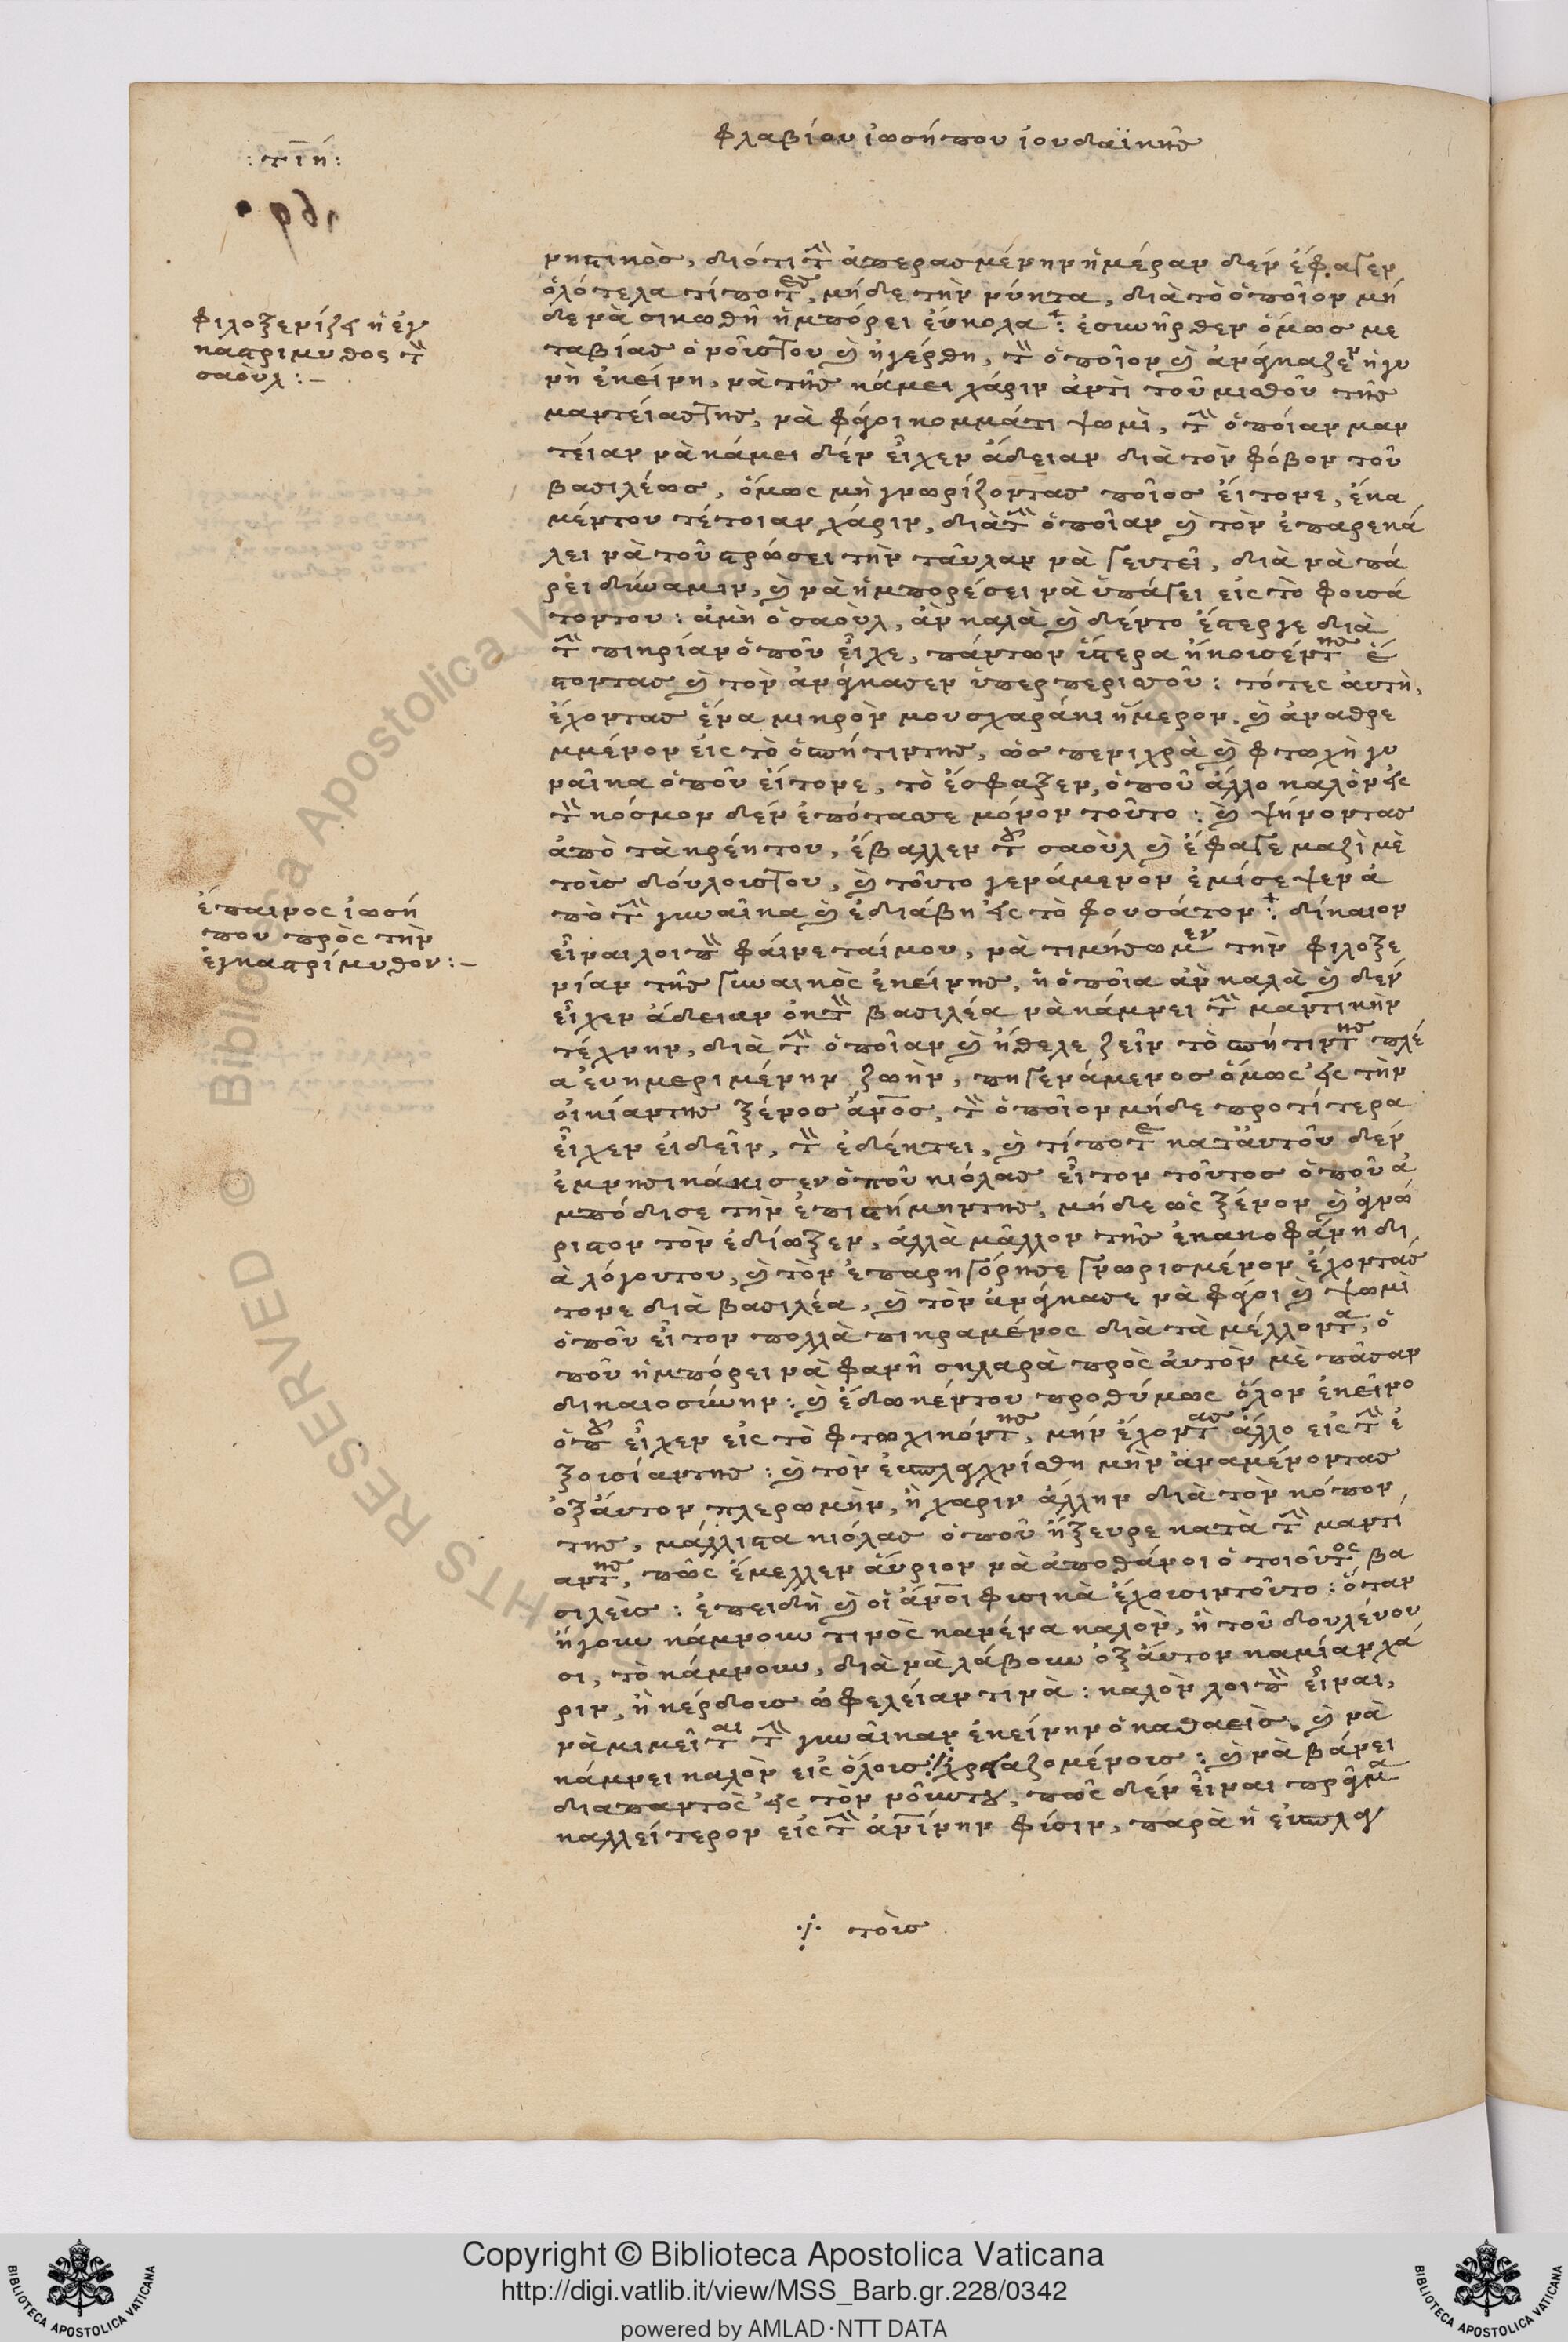 φλαβίου ἰωσήπου ἰουδαϊκῆς
:τιή:
νητικὸς, διότι τὴν ἀπερασμένην ἡμέραν δεν ἐφαγεν
ὁλότελα τίποτες, μήδε τὴν νύκτα, διὰ τὸ ὁποῖον μή
δε νὰ σικωθῆ ἠμπόρει ἐύκολα: ἐσυνῆρθεν ὅμως με
ταβίας ὁ νοῦς του καὶ ἠγέρθη, τὸν ὁποῖον καὶ ἀνάγκαζεν ἡ γυ
νὴ ἐκείνη, νὰ τῆς κάμει χάριν ἀντὶ τοῦ μισθοῦ τῆς
μαντείας της, νὰ φάγοι κομμάτι ψωμὶ, τὴν ὁποίαν μαν
τείαν νὰ κάμει δέν εἶχεν ἄδειαν διὰ τὸν φόβον τοῦ
βασιλέως, ὅμως μὴ γνωρίζοντας ποῖος εἴτονε, ἔκα
μέντου τέτοιαν χάριν, διὰ τὴν ὁποῖαν καὶ τὸν ἐπαρεκά
λει νὰ τοῦ στρώσει τὴν τάυλαν νὰ γευτεῖ, διὰ νὰ πά
ρει δύναμιν, καὶ νὰ ἠμπορέσει νὰ ὑπάγει εἰς τὸ φουσά
τοντου: ἀμὴ ὁ σαοὺλ, ἂν καλὰ καὶ δέντο ἔστεργε διὰ
τὴν πικρίαν ὁποῦ εἶχε, πάντων ὕστερα ἠκουσέντης ἐ
στοντας καὶ τὸν ἀνάγκασεν ὑπερπερισοῦ: τότες ἀυτὴ,
ἔχοντας ἕνα μικρὸν μουσχαράκι ἥμερον, καὶ ἀναθρε
μμένον εἰς τὸ ὁσπήτιντης, ὡς περιχρὰ καὶ φτωχὴ γυ
ναῖκα ὁποῦ εἴτονε, τὸ ἔσφαξεν, ὁποῦ ἄλλο καλὸν εἰς
τὸν κόσμον δέν ἐπότασε μόνον τοῦτο: καὶ ψήνοντας
ἀπὸ τὰ κρέη του, ἔβαλλεν τοῦ σαοὺλ καὶ ἔφαγε μαζὶ μὲ
τοὺς δούλους του, καὶ τοῦτο γενάμενον ἐμίσεψεν ἀ
πὸ τὴν γυναῖκα καὶ ἐδιάβη εἰς τὸ φουσάτον: δίκαιον
εἶναι λοιπὸν φάινεταίμου, νὰ τιμήσωμεν τὴν φιλοξε
νίαν τῆς γυναικὸς ἐκείνης, ἡ ὁποῖα ἂν καλὰ καὶ δεν
εἶχεν ἄδειαν ἐκ τὸν βασιλέα νὰ κάμνει τὴν μαντικὴν
τέχνην, διὰ τὴν ὁποῖαν καὶ ἤθελε ζεῖν τὸ σπήτιντης πλέ
α ἐυημεριμένην ζωὴν, πηγενάμενος ὅμως εἰς τὴν
οἰκίαντης ξένος ἄνος, τὸν ὁποῖον μήδε προτίτερα
εἶχεν εἰδεῖν, τὸν ἐδέκτει, καὶ τίποτε κατ' ἀυτοῦ δεν
ἐμνησικάκισεν ὁποῦ κιόλας εἶτον τοῦτος ὁποῦ ἀ
μπόδισε τὴν ἐπιστήμηντης, μήδε ὡς ξένον καὶ ἀγνώ
ριστον τὸν ἐδίωξεν, ἀλλὰ μᾶλλον τῆς ἐκακοφάνη δι
ὰ λόγουτου, καὶ τὸν ἐπαρηγόρησε γνωρισμένον ἔχοντας
τονε διὰ βασιλέα, καὶ τὸν ἀνάγκασε νὰ φάγοι καὶ ψωμὶ
ὁποῦ εἶτον πολλὰ πικραμένος διὰ τὰ μέλλοντα, ὁ
ποῦ ἠμπόρει νὰ φανῆ σκλαρὰ πρὸς ἀυτὸν μὲ πᾶσαν
δικαιοσύνην: καὶ ἐδωκέντου προθύμως ὅλον ἐκεῖνο
ὁποῦ εἶχεν εἰς τὸ φτωχικόντης, μὴν ἔχοντας ἄλλο εἰς τὴν ἐ
ξουσίαντης: καὶ τὸν ἐυσπλαγχνίσθη μὴν ἀναμένοντας
ἐξάυτον πλερωμὴν, ἢ χαριν ἄλλην διὰ τὸν κόπον
της, μάλλιστα κιόλας ὁποῦ ἤξευρε κατὰ τὴν μαντί
αντης, πῶς ἔμελλεν ἄυριον νὰ ἀποθάνοι ὁ τοιοῦτος βα
σιλεὺς: ἐπειδὴ καὶ οἱ ἄνοι φισικὰ ἔχουσιντοῦτο: ὅταν
ἤγουν κάμνουν τινὸς κανένα καλὸν, ἢ τοῦ δουλέυου
σι, τὸ κάμνουν, διὰ νὰ λάβουν ἐξάυτον καμίαν χά
ριν, ἢ κέρδους ὠφελείαν τινὰ: καλὸν λοιπὸν εἶναι,
νὰ μιμεῖται τὴν γυναῖκαν ἐκείνην ὁ καθαεὶς, καὶ νὰ
κάμνει καλὸν εἰς ὅλους ·/· χρειαζομένους: καὶ νὰ βάνει
διαπαντὸς εἰς τὸν νοῦντου, πῶς δέν εἶναι πρᾶγμα
καλλείτερον εἰς τὴν ἀνίνην φύσιν, παρὰ ἡ ἐυσπλαγ
·/· τοὺς
φιλοξενίζει ἡ ἐγ
γαστριμυθος τὸν
σαοὺλ:–
ἔπαινος ἰωσή
που πρὸς τὴν
ἐγγαστρίμυθον:–
Copyright © Biblioteca Apostolica Vaticana
http://digi.vatlib.it/view/MSS_Barb.gr.228/0342
powered by AMLAD·NTT DATA
BIBLIOTECA APOSTOLICA VATICANA
BIBLIOTECA APOSTOLICA VATICANA